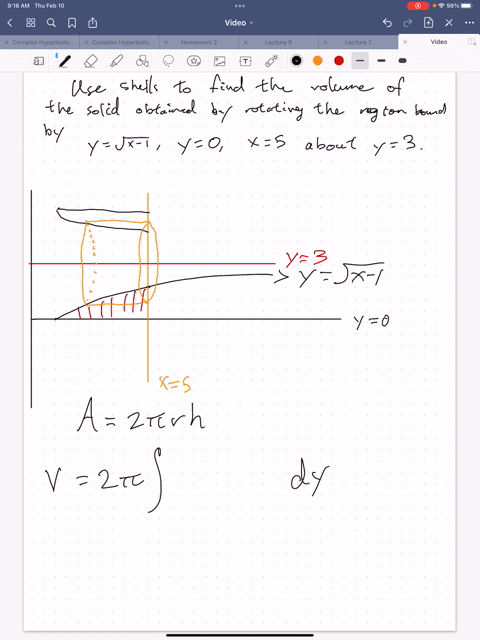 9:18 AM Thu Feb 10
98%
Video
Complex Hyperbolic...
Complex Hyperbolic...
Homework 2
Lecture 6
Lecture 7
Video
Use shells to find the volume of
the solid obtained by rotating the region bound
by
y=√x-1, y=0, x=5 about y=3.
y=3
y=√x-1
y=0
x=5
A=2πrh
V=2π∫ dy